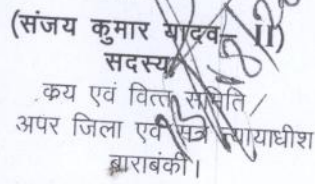 (संजय कुमार यादव- II)
सदस्य
क्रय एवं वित्त समिति /
अपर जिला एवं सत्र न्यायाधीश
बाराबंकी।